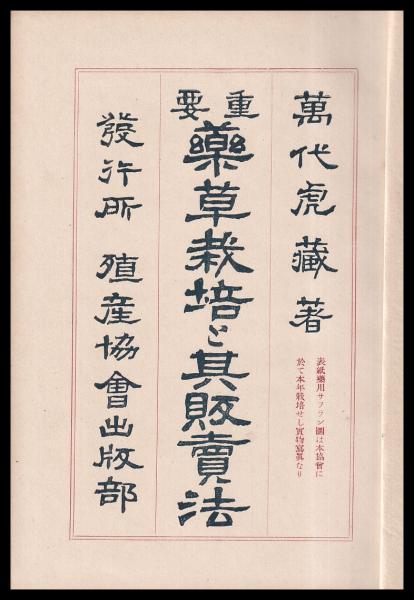 萬代虎藏著
表紙藥用サフラン圖は本協會に
於て本年栽培せし實物寫眞なり
重要
藥草栽培と其販賣法
發行所 殖産協會出版部